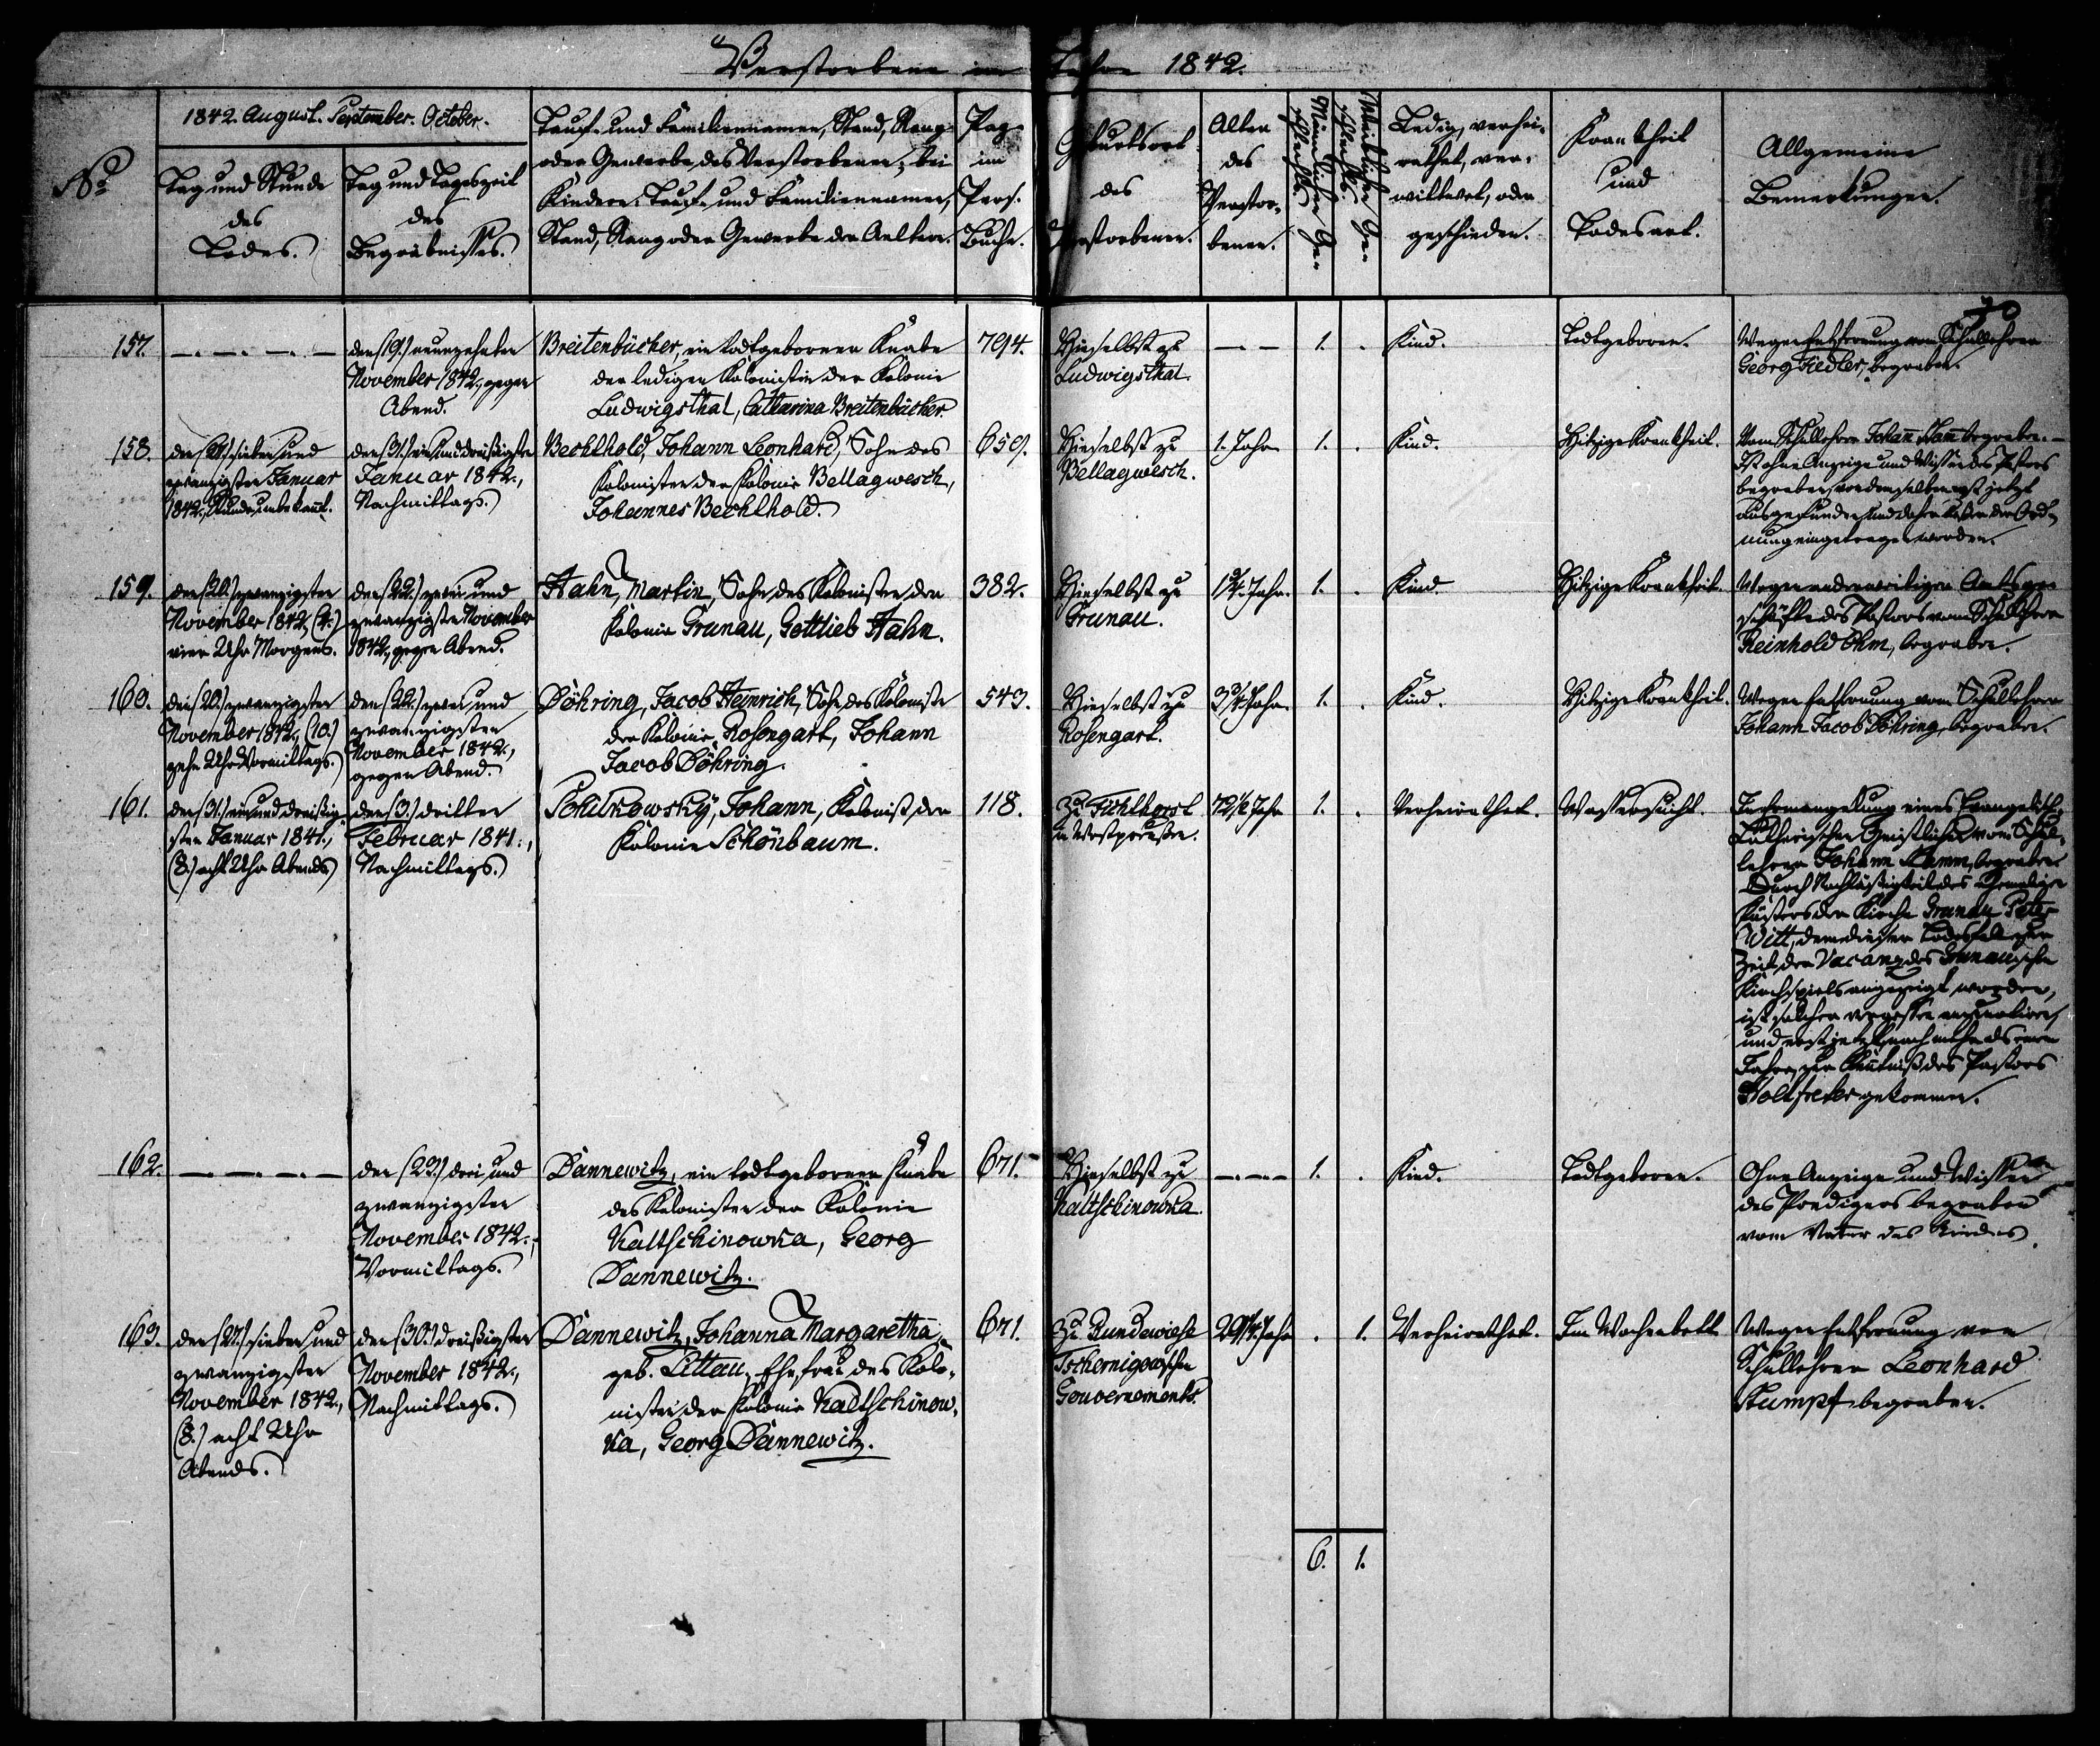 Verstorbene im Jahre 1842.
No
1842. August. September. October.
Tag und Stunde
des
Todes.
Tag und Tageszeit
des
Begräbnißes.
Tauf- und Familiennamen, Stand, Rang
oder Gewerbe des Verstorbenen; bei
Kindern: Tauf- und Familiennamen,
Stand, Rang oder Gewerbe der Aeltern.
Pag.
im
Pers.
Buche.
Geburtsort
des
Verstorbenen.
Alter
des
Verstor-
benen.
Männlichen Ge-
schlechts.
Weiblichen Ge-
schlechts.
Ledig, verhei-
rathet, ver-
wittwet, oder
geschieden.
Krankheit
und
Todesart.
Allgemeine
Bemerkungen.
30
157.
den (19.) neunzehnten
November 1842, gegen
Abend.
Breitenbücher, ein todtgeborner Knabe
der ledigen Kolonistin der Kolonie
Ludwigsthal, Catharina Breitenbücher.
794.
Hieselbst zu
Ludwigsthal.
1.
Kind.
Todtgeboren.
Wegen Entfernung vom Schullehrer
Georg Fiedler, begraben.
158.
den (27.) sieben und
zwanzigsten Januar
1842., Stunde, unbekannt.
den (31.) ein und dreißigsten
Januar 1842.,
Nachmittags.
Bechthold, Johann Leonhard, Sohn des
Kolonisten der Kolonie Bellagwesch,
Johannes Bechthold.
659.
Hieselbst zu
Bellagwesch.
1. Jahr
1.
Kind.
Hitzige Krankheit.
Vom Schullehrer Johann begraben.
Ist ohne Anzeige und Wissen des Pastors
begraben, von demselben erst jetzt
ausgefunden und daher außer der Ord-
nung eingetragen worden.
159.
den (20.) zwanzigsten
November 1842, (4.)
vier Uhr Morgens.
den (22.) zwei und
zwanzigsten November
1842., gegen Abend.
Hahn, Martin, Sohn des Kolonisten der
Kolonie Grunau, Gottlieb Hahn.
382.
Hieselbst zu
Grunau.
1¾. Jahr.
1.
Kind
Hitzige Krankheit.
Wegen anderweitigen Amtsge-
schäfte des Pastors vom Schullehrer
Reinhold Ohm, begraben.
160.
den (20.) zwanzigsten
November 1842, (10.)
zehn Uhr Vormittags.
den (22.) zwei und
zwanzigsten
November 1842.,
gegen Abend.
Döhring, Jacob Heinrich, Sohn des Kolonisten
der Kolonie, Rosengart, Johann
Jacob Döhring.
543.
Hieselbst zu
Rosengart.
3¾ Jahr.
1.
Kind.
Hitzige Krankheit.
Wegen Entfernung vom Schullehrer
Johann Jacob Döhring, begraben.
161.
den (31.) ein und dreißig-
sten Januar 1841.,
(8.) acht Uhr Abends
den (3.) dritten
Februar 1841.,
Nachmittags.
Schilkowsky, Johann, Kolonist der
Kolonie Schönbaum.
118.
Zu Fichthorst
in Westpreußen.
72½ Jahr
1.
Verheirathet.
Wassersucht.
In Ermangelung eines Evangelisch
Lutherischen Geistlichen vom Schul-
lehrer Johann Stamm, begraben
Durch Nachläßigkeit des ehemaligen
Küsters der Kirche Grunau Peter
Witt, dem dieser Todesfall zur
Zeit der Vacanz des Grunauschen
Kirchspiels angezeigt worden,
ist solcher vergessen
und erst jetzt, nach mehr als einem
Jahre, zur Kentniß des Pastors
Holtfreter gekommen.
162.
den (23.) drei und
zwanzigsten
November 1842.,
Vormittags.
Dannewitz, ein todtgeborner Knabe
des Kolonisten der Kolonie
Kaltschinowka, Georg
Dannewitz.
671.
Hieselbst zu
Kaltschinowka.
1.
Kind.
Todtgeboren.
Ohne Anzeige und Wissen
des Predigers begraben
vom Vater des Kindes.
163.
den (27.) sieben und
zwanzigsten
November 1842.,
(8.) acht Uhr
Abends.
den (30.) dreißigsten
November 1842.,
Nachmittags.
Dannewitz, Johanna Margaretha,
geb. Littau, Ehefrau des Kolo-
nisten der Kolonie Kaltschinow-
ka, Georg Dannewitz.
671.
Zu Rundewiese
Tschernigowschen
Gouvernements.
29¼. Jahr
1.
Verheirathet.
Im Wochenbett
Wegen Entfernung vom
Schullehrer Leonhard
Stumpf begraben.
6.
1.